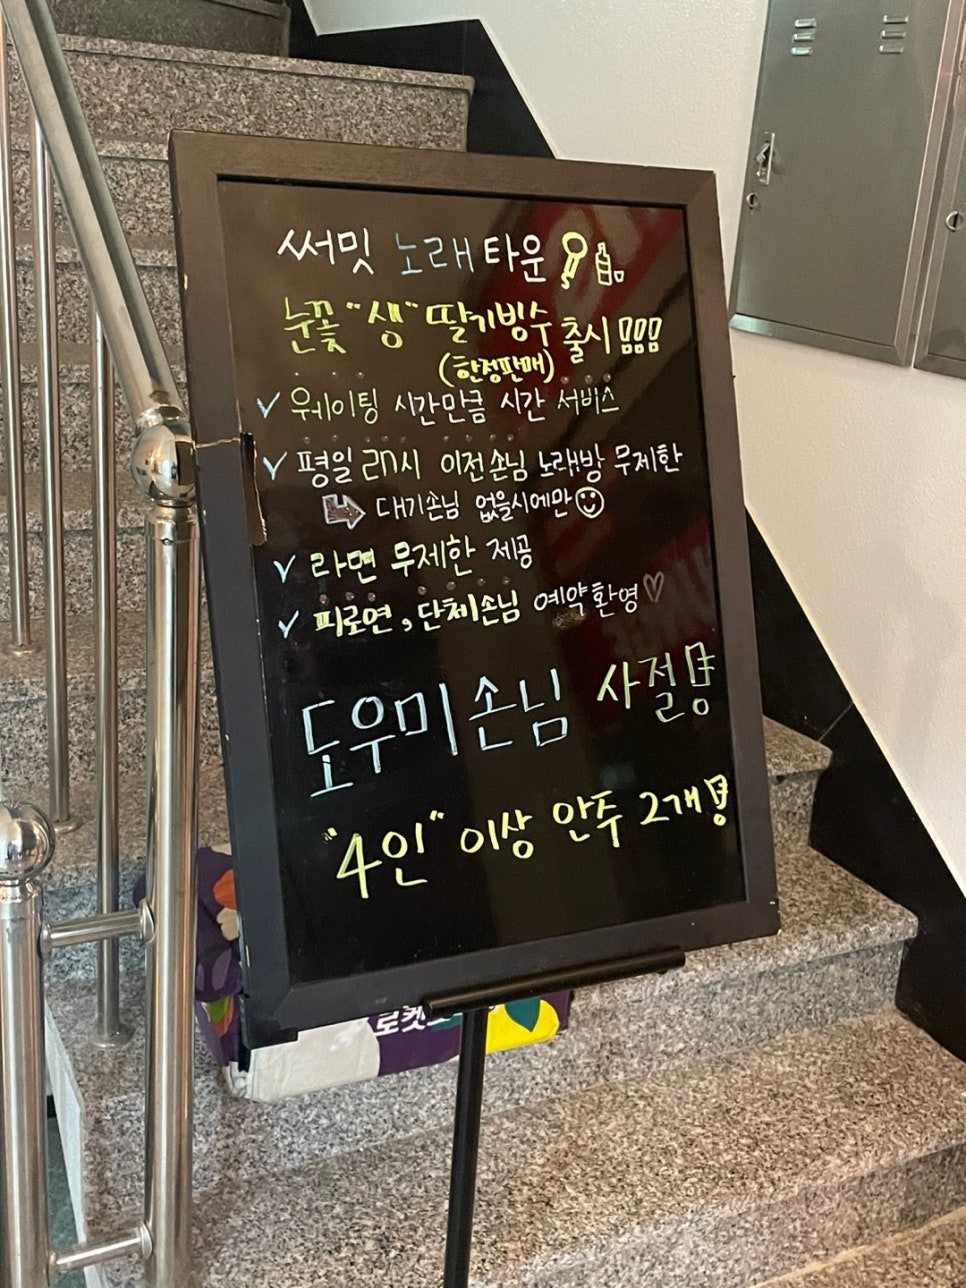 써밋 노래타운
눈꽃 "생" 딸기빙수 출시!!!
(한정판매)
✓ 웨이팅 시간만큼 시간 서비스
✓ 평일 2n시 이전손님 노래방 무제한
➡ 대기손님 없을시에만☺
✓ 라면 무제한 제공
✓ 피로연, 단체손님 예약환영♡
도우미손님 사절!
"4인" 이상 안주 2개!
로켓